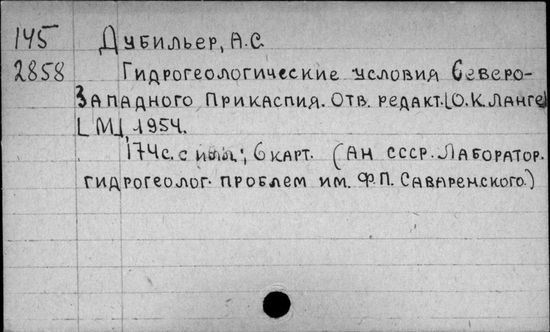 145 Дубильер, А.С.
2858 Гидрогеологические условия Северо-
Западного Прикаспия. Отв. редакт. [О.К. Ланге]
[М], 1954.
174 с. с илл.; 6 карт. (АН СССР. Лаборатор.
гидрогеолог. проблем им. Ф.П. Саваренского.)